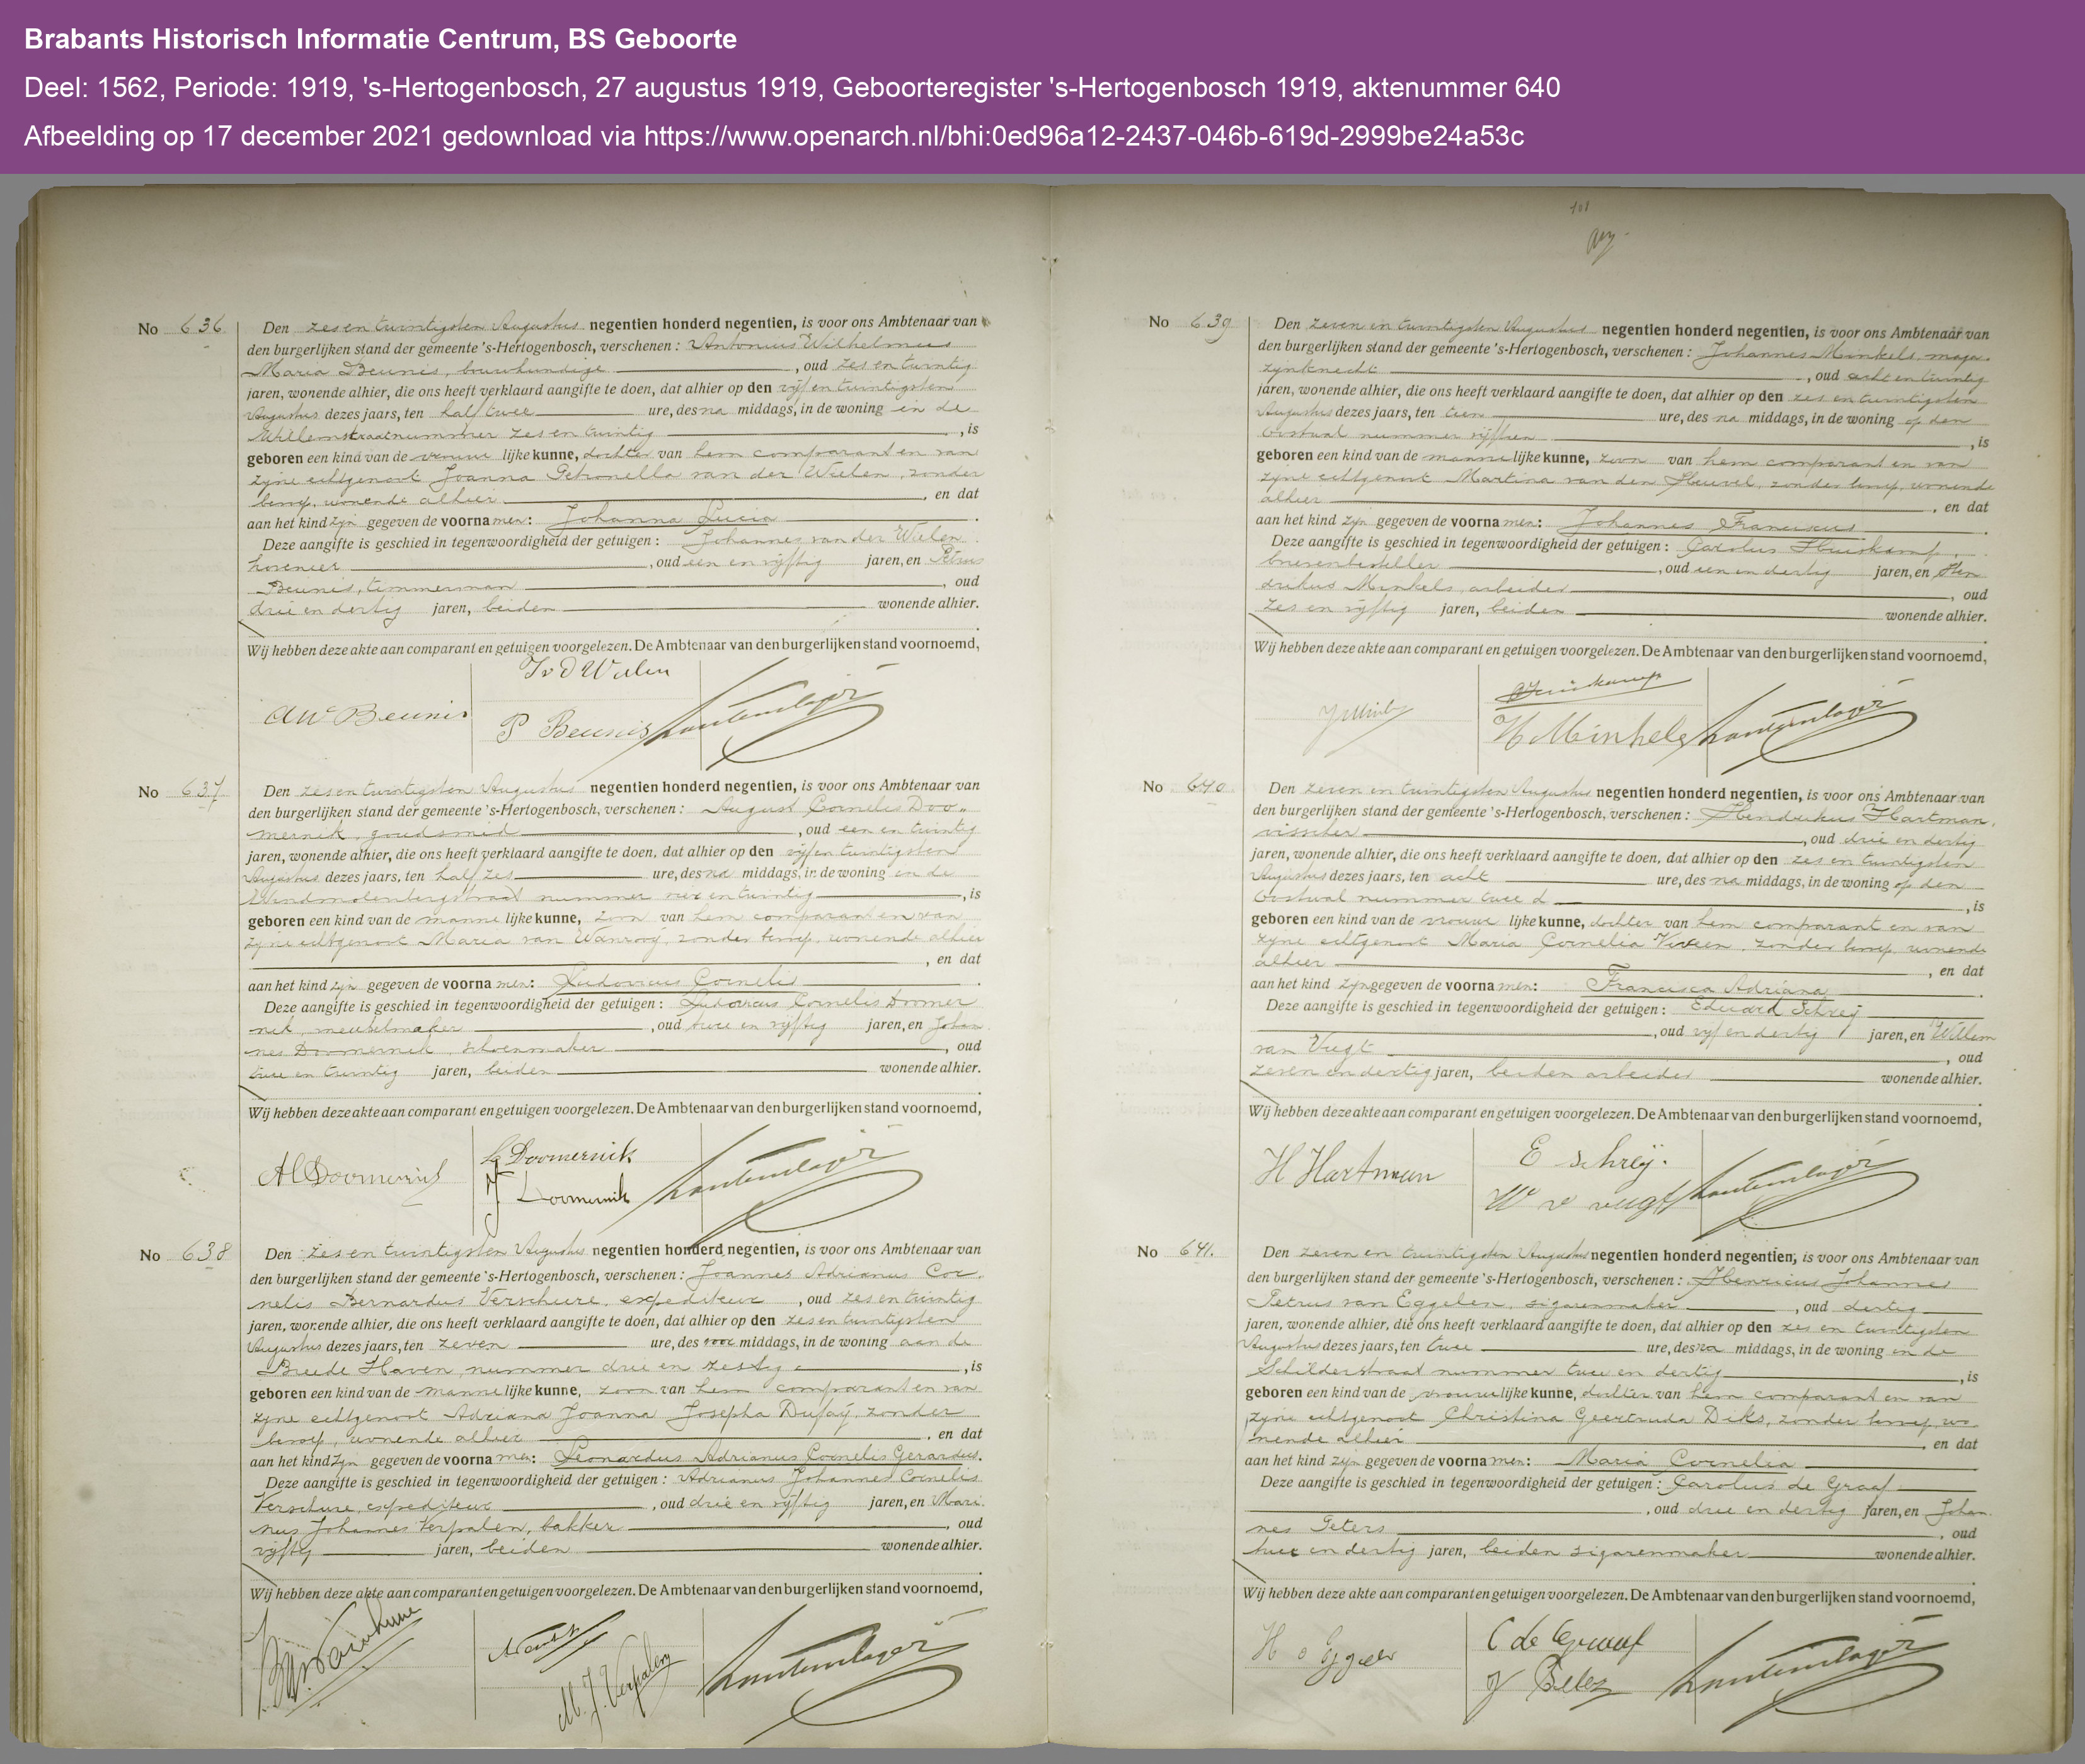 Brabants Historisch Informatie Centrum, BS Geboorte
Deel: 1562, Periode: 1919, 's-Hertogenbosch, 27 augustus 1919, Geboorteregister 's-Hertogenbosch 1919, aktenummer 640
Afbeelding op 17 december 2021 gedownload via https://www.openarch.nl/bhi:0ed96a12-2437-046b-619d-2999be24a53c
No 636
Den zes en twintigsten Augustus negentien honderd negentien, is voor ons Ambtenaar van
den burgerlijken stand der gemeente 's-Hertogenbosch, verschenen: Antonius Wilhelmus
Maria Beunis, bouwkundige, oud zes en twintig
jaren, wonende alhier, die ons heeft verklaard aangifte te doen, dat alhier op den vijf en twintigsten
Augustus dezes jaars, ten half twee ure, des na middags, in de woning in de
Willemstraat nummer zes en twintig, is
geboren een kind van de vrouwelijke kunne, dochter van hem comparant en van
zijne echtgenoot Joanna Petronella van der Wielen, zonder
beroep, wonende alhier, en dat
aan het kind zijn gegeven de voornamen: Johanna Lucia.
Deze aangifte is geschied in tegenwoordigheid der getuigen: Johannes van der Wielen
hovenier, oud een en vijftig jaren, en Petrus
Beunis, timmerman, oud
drie en dertig jaren, beiden wonende alhier.
Wij hebben deze akte aan comparant en getuigen voorgelezen. De Ambtenaar van den burgerlijken stand voornoemd,
J v d Wielen
AW Beunis
P Beunis
No 637
Den zes en twintigsten Augustus negentien honderd negentien, is voor ons Ambtenaar van
den burgerlijken stand der gemeente 's-Hertogenbosch, verschenen: August Cornelis Doo„
mernik, goudsmid, oud een en twintig
jaren, wonende alhier, die ons heeft verklaard aangifte te doen, dat alhier op den vijf en twintigsten
Augustus dezes jaars, ten half zes ure, des na middags, in de woning in de
Windmolenbergstraat nummer vier en twintig, is
geboren een kind van de mannelijke kunne, zoon van hem comparant en van
zijne echtgenoot Maria van Wanrooij, zonder beroep, wonende alhier
, en dat
aan het kind zijn gegeven de voornamen: Ludovicus Cornelis.
Deze aangifte is geschied in tegenwoordigheid der getuigen: Ludovicus Cornelis Doomer
nik, meubelmaker, oud twee en vijftig jaren, en Johan
nes Doomernik, schoenmaker, oud
twee en twintig jaren, beiden wonende alhier.
Wij hebben deze akte aan comparant en getuigen voorgelezen. De Ambtenaar van den burgerlijken stand voornoemd,
L Doomernik
AC Doomernik
J Doomernik
No 638
Den zes en twintigsten Augustus negentien honderd negentien, is voor ons Ambtenaar van
den burgerlijken stand der gemeente 's-Hertogenbosch, verschenen: Joannes Adrianus Cor
nelis Bernardus Verschure, expediteur, oud zes en twintig
jaren, wonende alhier, die ons heeft verklaard aangifte te doen, dat alhier op den zes en twintigsten
Augustus dezes jaars, ten zeven ure, des voor middags, in de woning aan de
Breede Haven, nummer drie en zestig, is
geboren een kind van de mannelijke kunne, zoon van hem comparant en van
zijne echtgenoot Adriana Joanna Josepha Dufaij, zonder
beroep, wonende alhier, en dat
aan het kind zijn gegeven de voornamen: Leonardus Adrianus Cornelis Gerardus.
Deze aangifte is geschied in tegenwoordigheid der getuigen: Adrianus Johannes Cornelis
Verschure, expediteur, oud drie en vijftig jaren, en Mari
nus Johannes Verpalen, bakker, oud
vijftig jaren, beiden wonende alhier.
Wij hebben deze akte aan comparant en getuigen voorgelezen. De Ambtenaar van den burgerlijken stand voornoemd,
M. J. Verpalen
101
No 639
Den zeven en twintigsten Augustus negentien honderd negentien, is voor ons Ambtenaar van
den burgerlijken stand der gemeente 's-Hertogenbosch, verschenen: Johannes Minkels, maga
zijnknecht, oud acht en twintig
jaren, wonende alhier, die ons heeft verklaard aangifte te doen, dat alhier op den zes en twintigsten
Augustus dezes jaars, ten tien ure, des na middags, in de woning op den
Oostwal nummer vijftien, is
geboren een kind van de mannelijke kunne, zoon van hem comparant en van
zijne echtgenoot Martina van den Heuvel, zonder beroep, wonende
alhier, en dat
aan het kind zijn gegeven de voornamen: Johannes Franciscus.
Deze aangifte is geschied in tegenwoordigheid der getuigen: Carolus Huiskamp,
brievenbesteller, oud een en dertig jaren, en Hen
drikus Minkels, arbeider, oud
zes en vijftig jaren, beiden wonende alhier.
Wij hebben deze akte aan comparant en getuigen voorgelezen. De Ambtenaar van den burgerlijken stand voornoemd,
Huiskamp
H Minkels
No 640
Den zeven en twintigsten Augustus negentien honderd negentien, is voor ons Ambtenaar van
den burgerlijken stand der gemeente 's-Hertogenbosch, verschenen: Hendrikus Hartman,
visscher, oud drie en dertig
jaren, wonende alhier, die ons heeft verklaard aangifte te doen, dat alhier op den zes en twintigsten
Augustus dezes jaars, ten acht ure, des na middags, in de woning op den
Oostwal nummer twee d, is
geboren een kind van de vrouwelijke kunne, dochter van hem comparant en van
zijne echtgenoot Maria Cornelia, zonder beroep, wonende
alhier, en dat
aan het kind zijn gegeven de voornamen: Francisca Adriana.
Deze aangifte is geschied in tegenwoordigheid der getuigen: Eduard Schreij
, oud vijf en dertig jaren, en Willem
van Vugt, oud
zeven en dertig jaren, beiden arbeider wonende alhier.
Wij hebben deze akte aan comparant en getuigen voorgelezen. De Ambtenaar van den burgerlijken stand voornoemd,
E schreij.
H Hartman
W v vugt
No 641.
Den zeven en twintigsten Augustus negentien honderd negentien, is voor ons Ambtenaar van
den burgerlijken stand der gemeente 's-Hertogenbosch, verschenen: Henricus Johannes
Petrus van Eggelen, sigarenmaker, oud dertig
jaren, wonende alhier, die ons heeft verklaard aangifte te doen, dat alhier op den zes en twintigsten
Augustus dezes jaars, ten twee ure, des na middags, in de woning in de
Schilderstraat nummer twee en dertig, is
geboren een kind van de vrouwelijke kunne, dochter van hem comparant en van
zijne echtgenoot Christina Geertruda Diks, zonder beroep, wo
nende alhier, en dat
aan het kind zijn gegeven de voornamen: Maria Cornelia
Deze aangifte is geschied in tegenwoordigheid der getuigen: Carolus de Graaf
, oud drie en dertig jaren, en Johan
nes Peters, oud
twee en dertig jaren, beiden sigarenmaker wonende alhier.
Wij hebben deze akte aan comparant en getuigen voorgelezen. De Ambtenaar van den burgerlijken stand voornoemd,
C de Graaf
H v Eggelen
J Peters